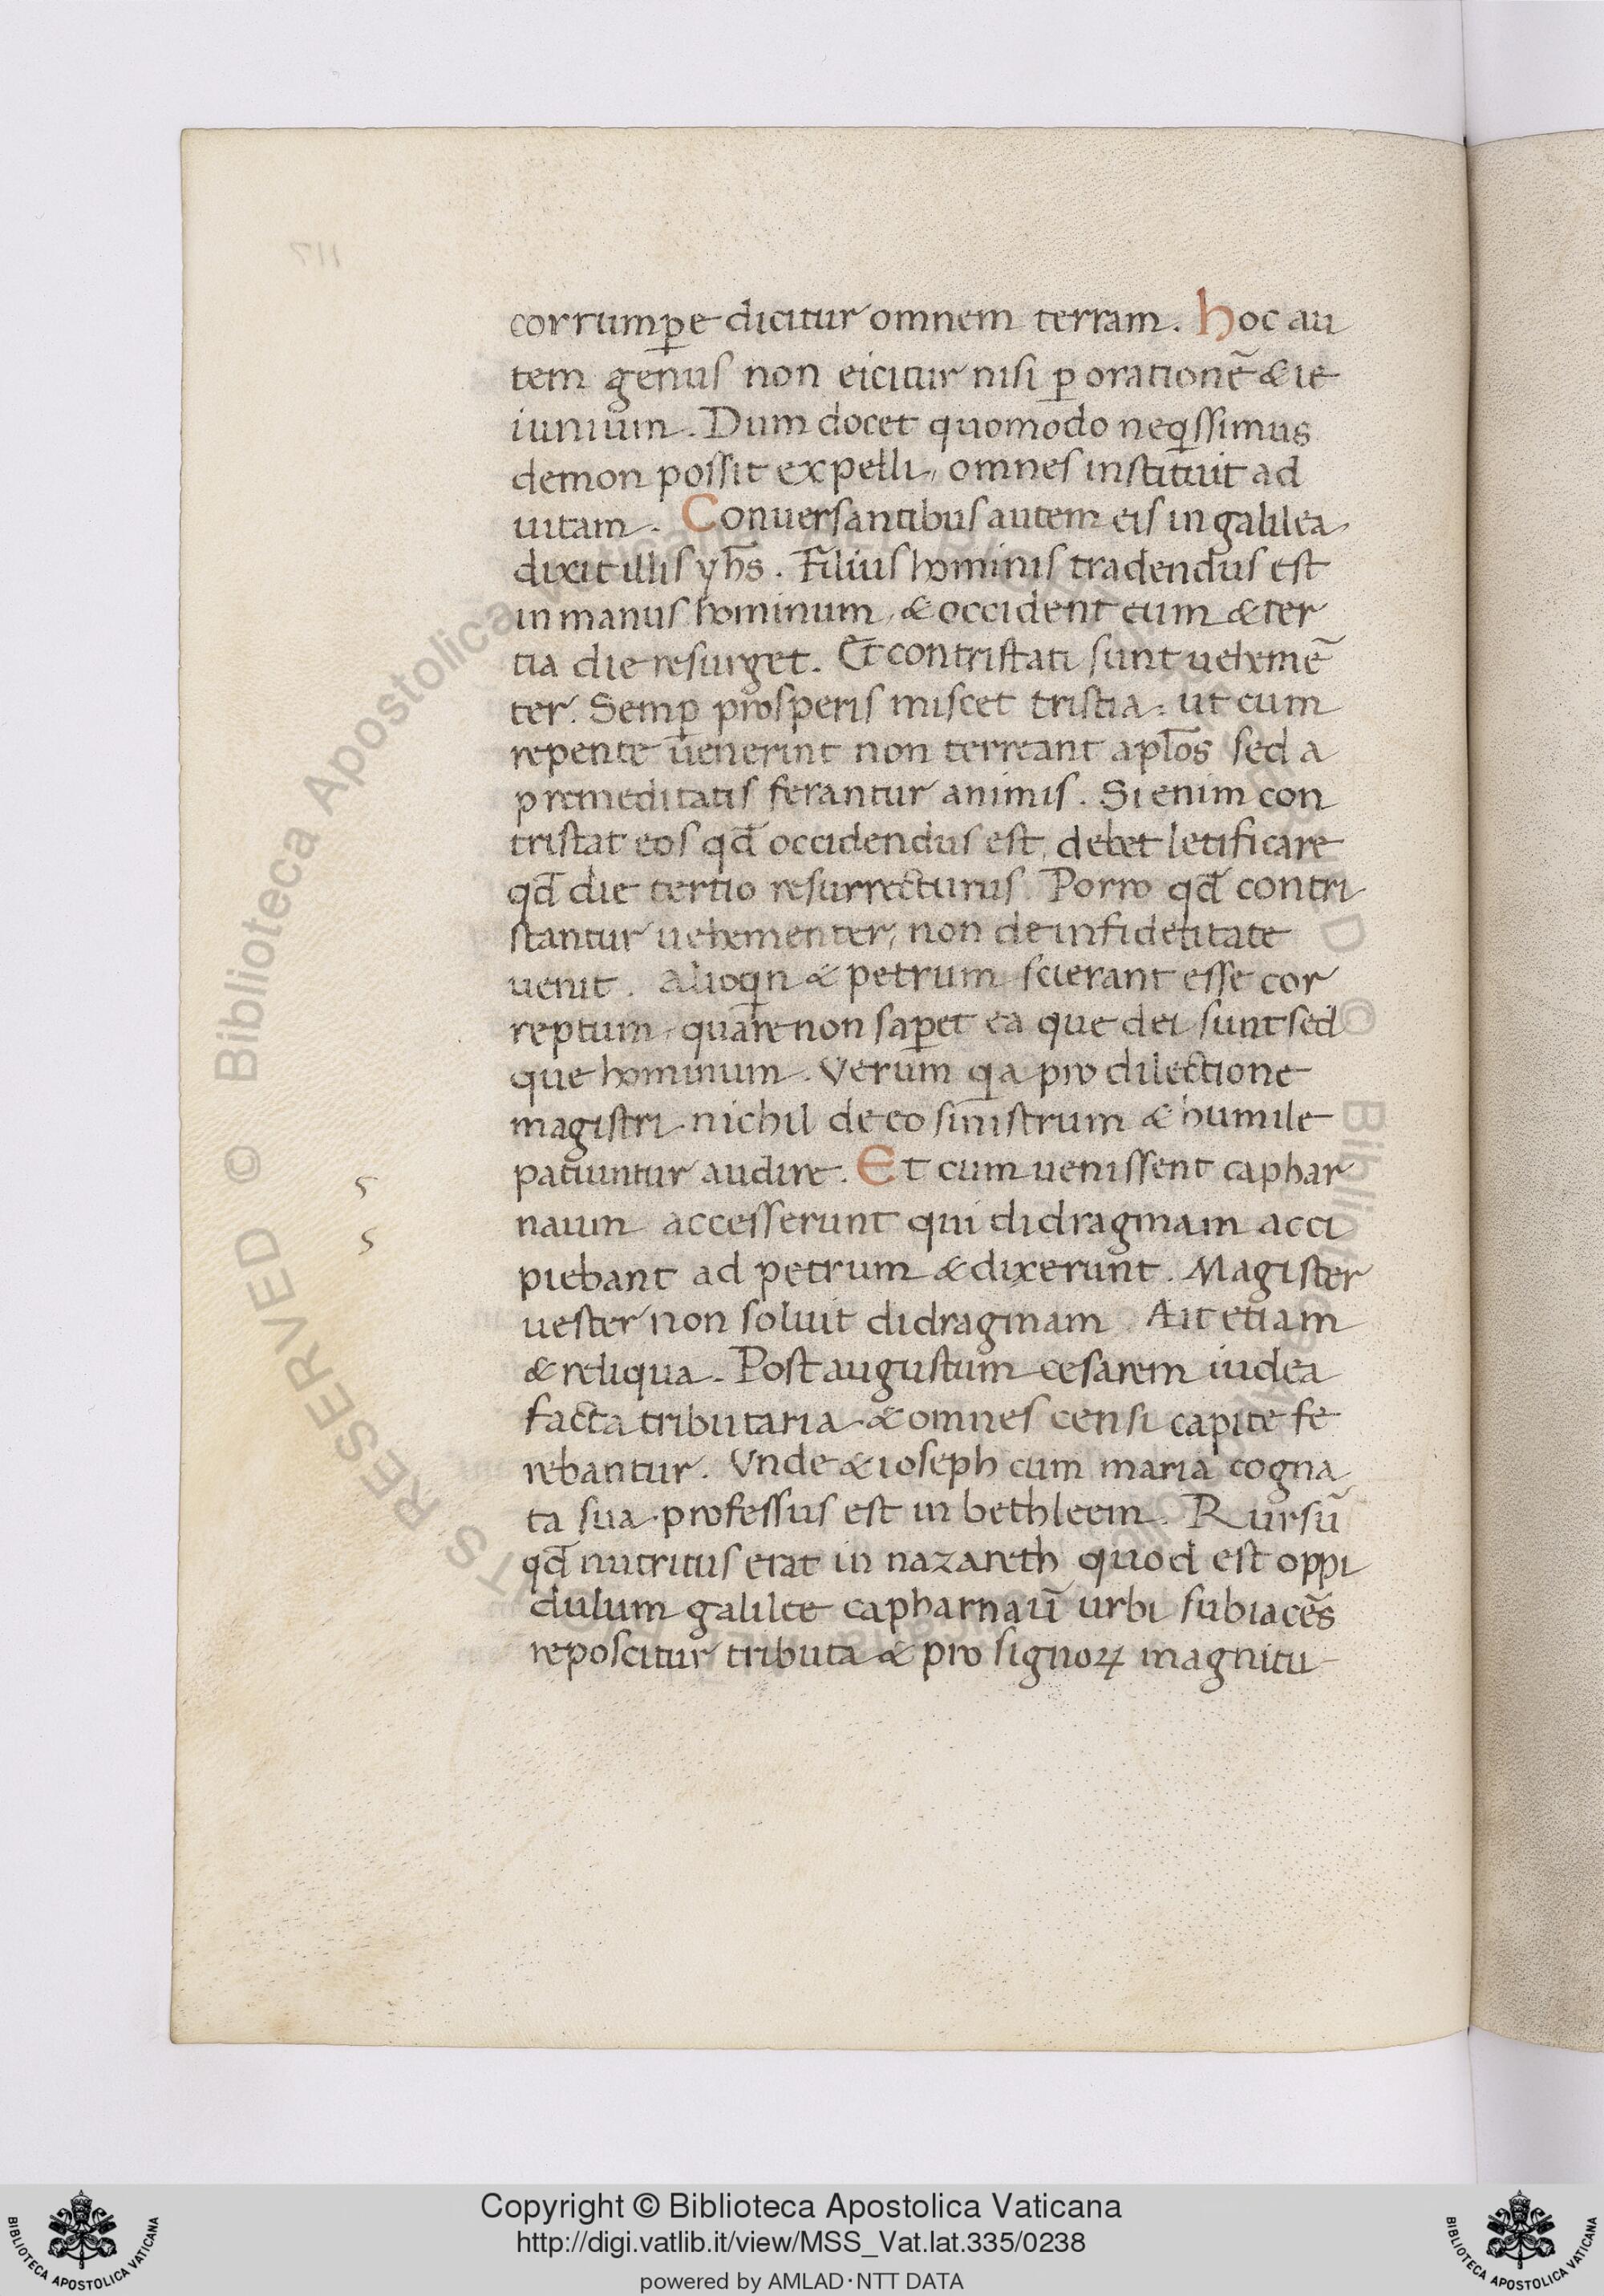 corrumꝑe dicitur omnem terram. hoc au
tem genus non eicitur nisi ꝑ orationē & ie
iunium. Dum docet quomodo neqͥssimus
demon possit expelli, omnes instituit ad
uitam. Conuersantibus autem eis in galilea,
dixit illis yhs̄. Filius hominis tradendus est
in manus hominum, & occident eum & ter
tia die resurget. Et contristati sunt uehemē
ter. Semꝑ prosperis miscet tristia. ut cum
repente uenerint non terreant apl̄os sed a
premeditatis ferantur animis. Si enim con
tristat eos qd̄ occidendus est, debet letificare
qd̄ die tertio resurrecturus. Porro qd̄ contri
stantur uehementer, non de infidelitate
uenit. alioqͥn & petrum scierant esse cor
reptum, quare non saꝑet ea que dei sunt sed
que hominum. Verum qͥa pro dilectione
magistri nichil de eo sinistrum & humile
patiuntur audire. Et cum uenissent caphar
naum accesserunt qui didragmam acci
piebant ad petrum & dixerunt. Magister
uester non soluit didragmam. Ait etiam
& reliqua. Post augustum cesarem iudea
facta tributaria & omnes censi capite fe
rebantur. Vnde & ioseph cum maria cogna
ta sua professus est in bethleem. Rursū
qd̄ nutritus erat in nazareth quod est oppi
dulum galilee capharnaū urbi subiacēs
reposcitur tributa & pro signoꝝ magnitu
s
s
Copyright © Biblioteca Apostolica Vaticana
http://digi.vatlib.it/view/MSS_Vat.lat.335/0238
powered by AMLAD·NTT DATA
BIBLIOTECA APOSTOLICA VATICANA
BIBLIOTECA APOSTOLICA VATICANA